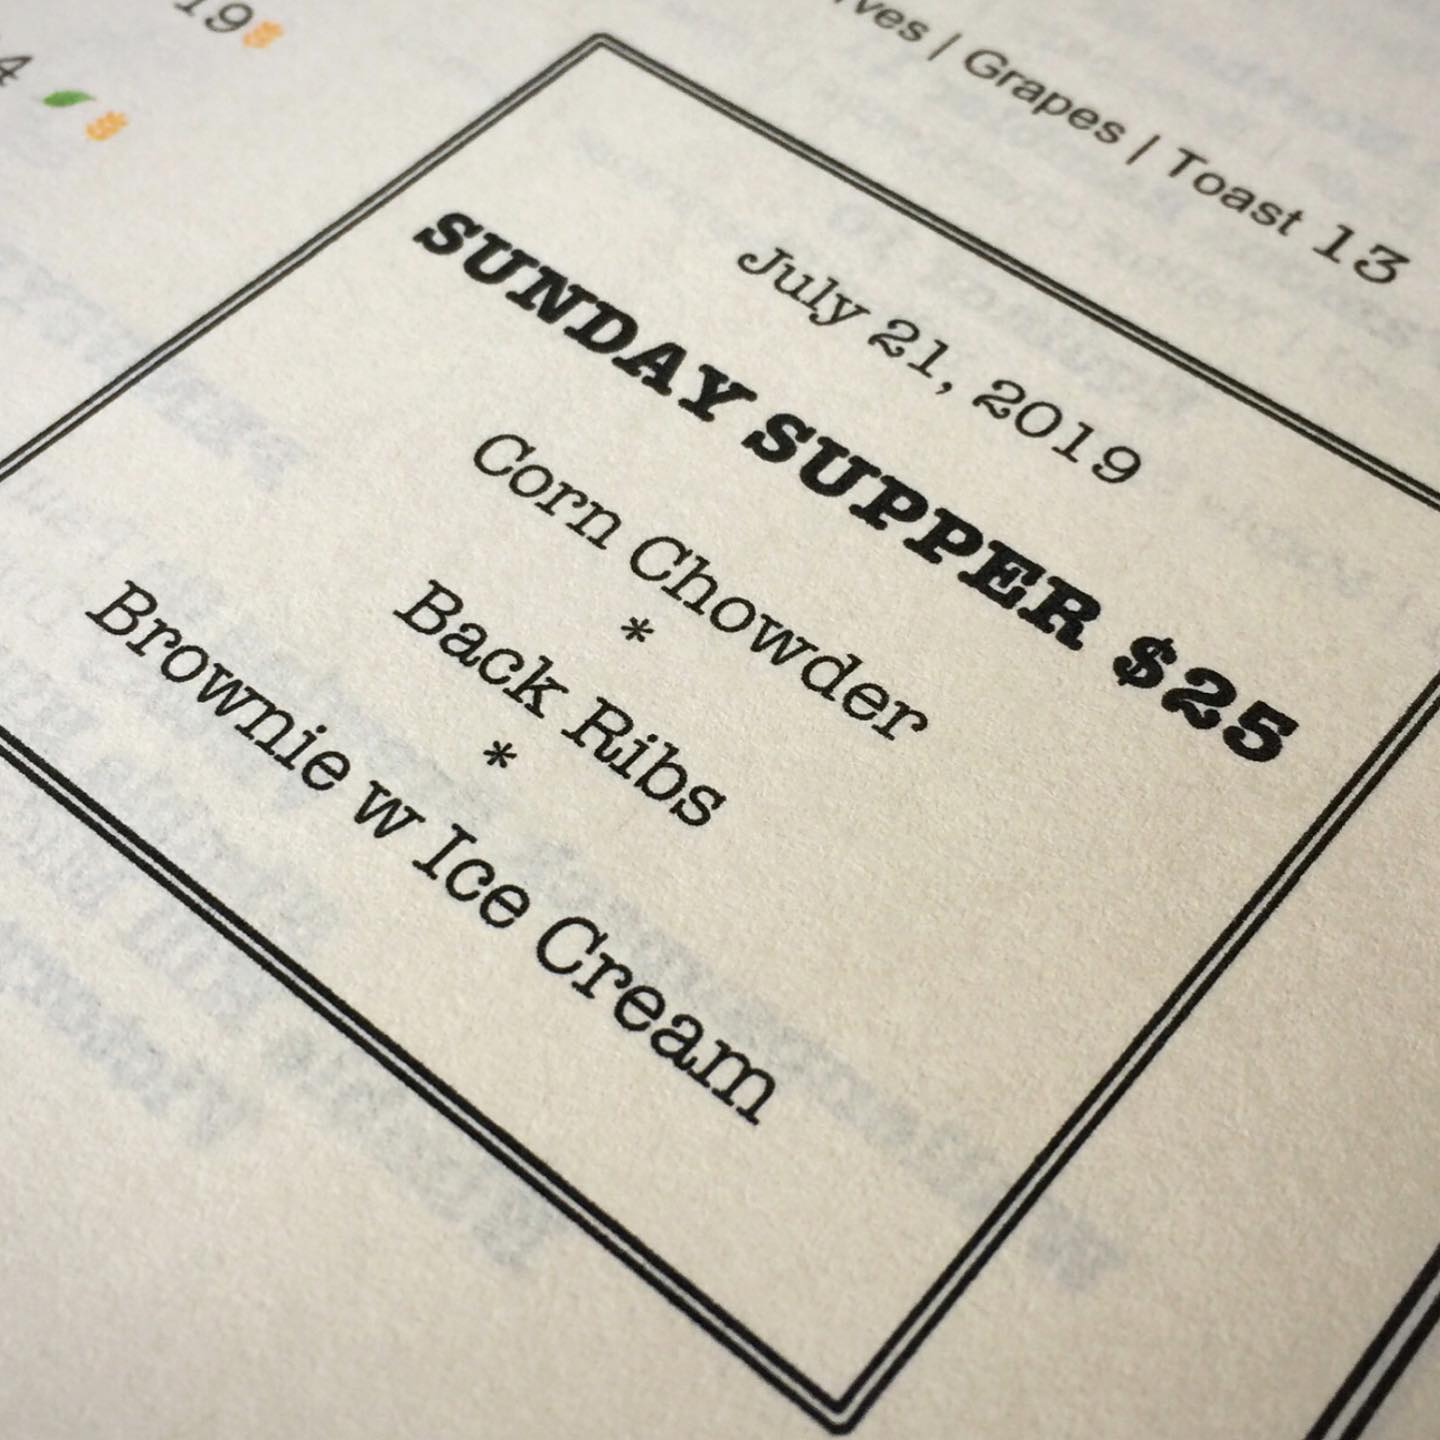 19
4
| Grapes | Toast 13
July 21, 2019
SUNDAY SUPPER $25
Corn Chowder
*
Back Ribs
*
Brownie w Ice Cream